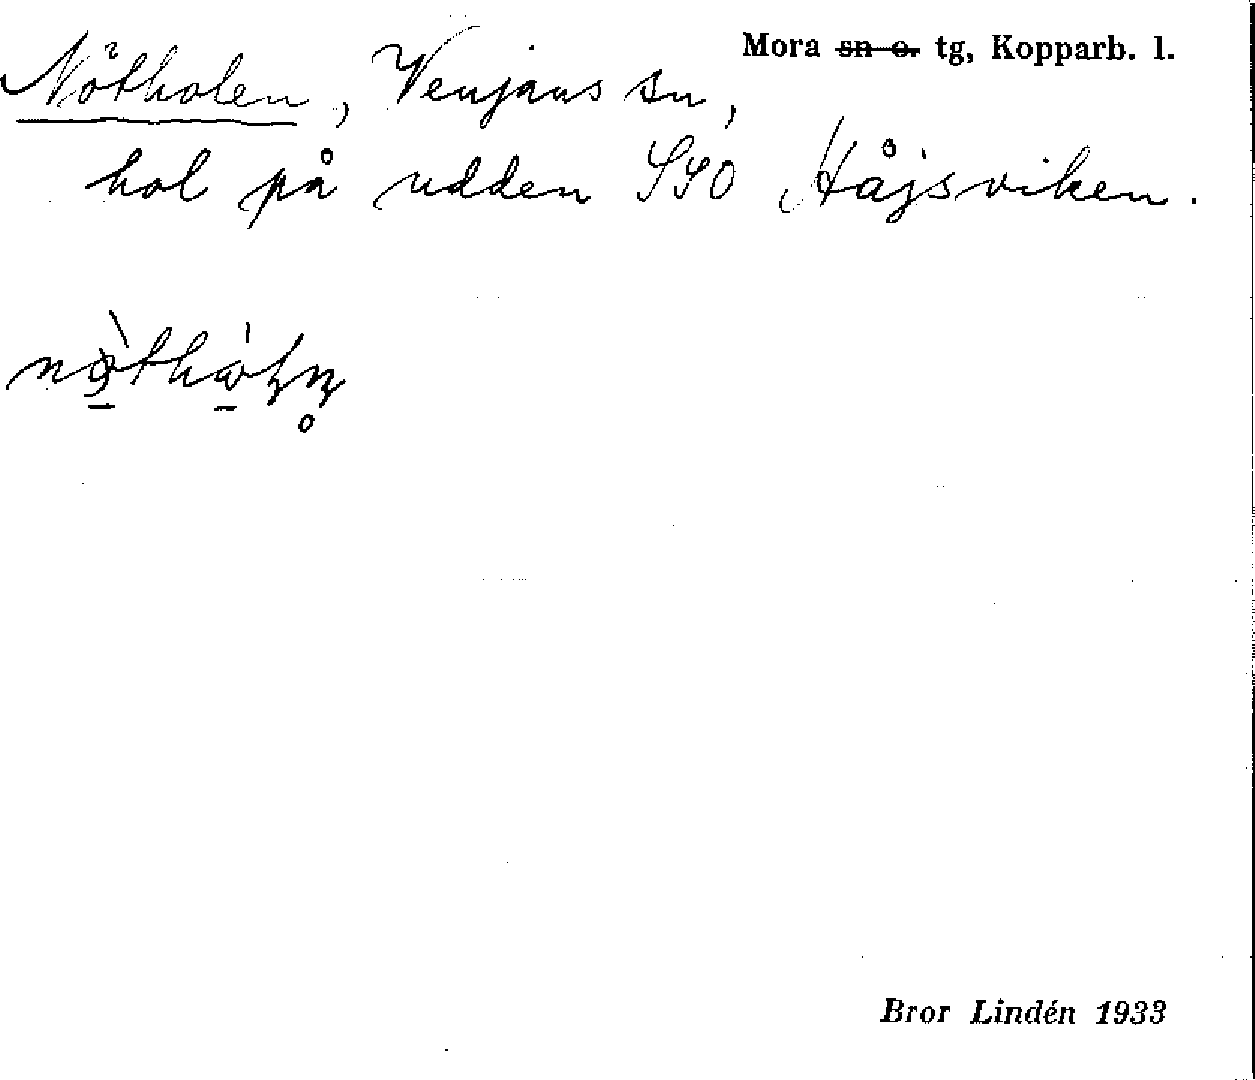 Mora sn o. tg, Kopparb. l.
Nötholen, Venjans sn,
hol på udden SSO Håjsviken.
Bror Lindén 1933